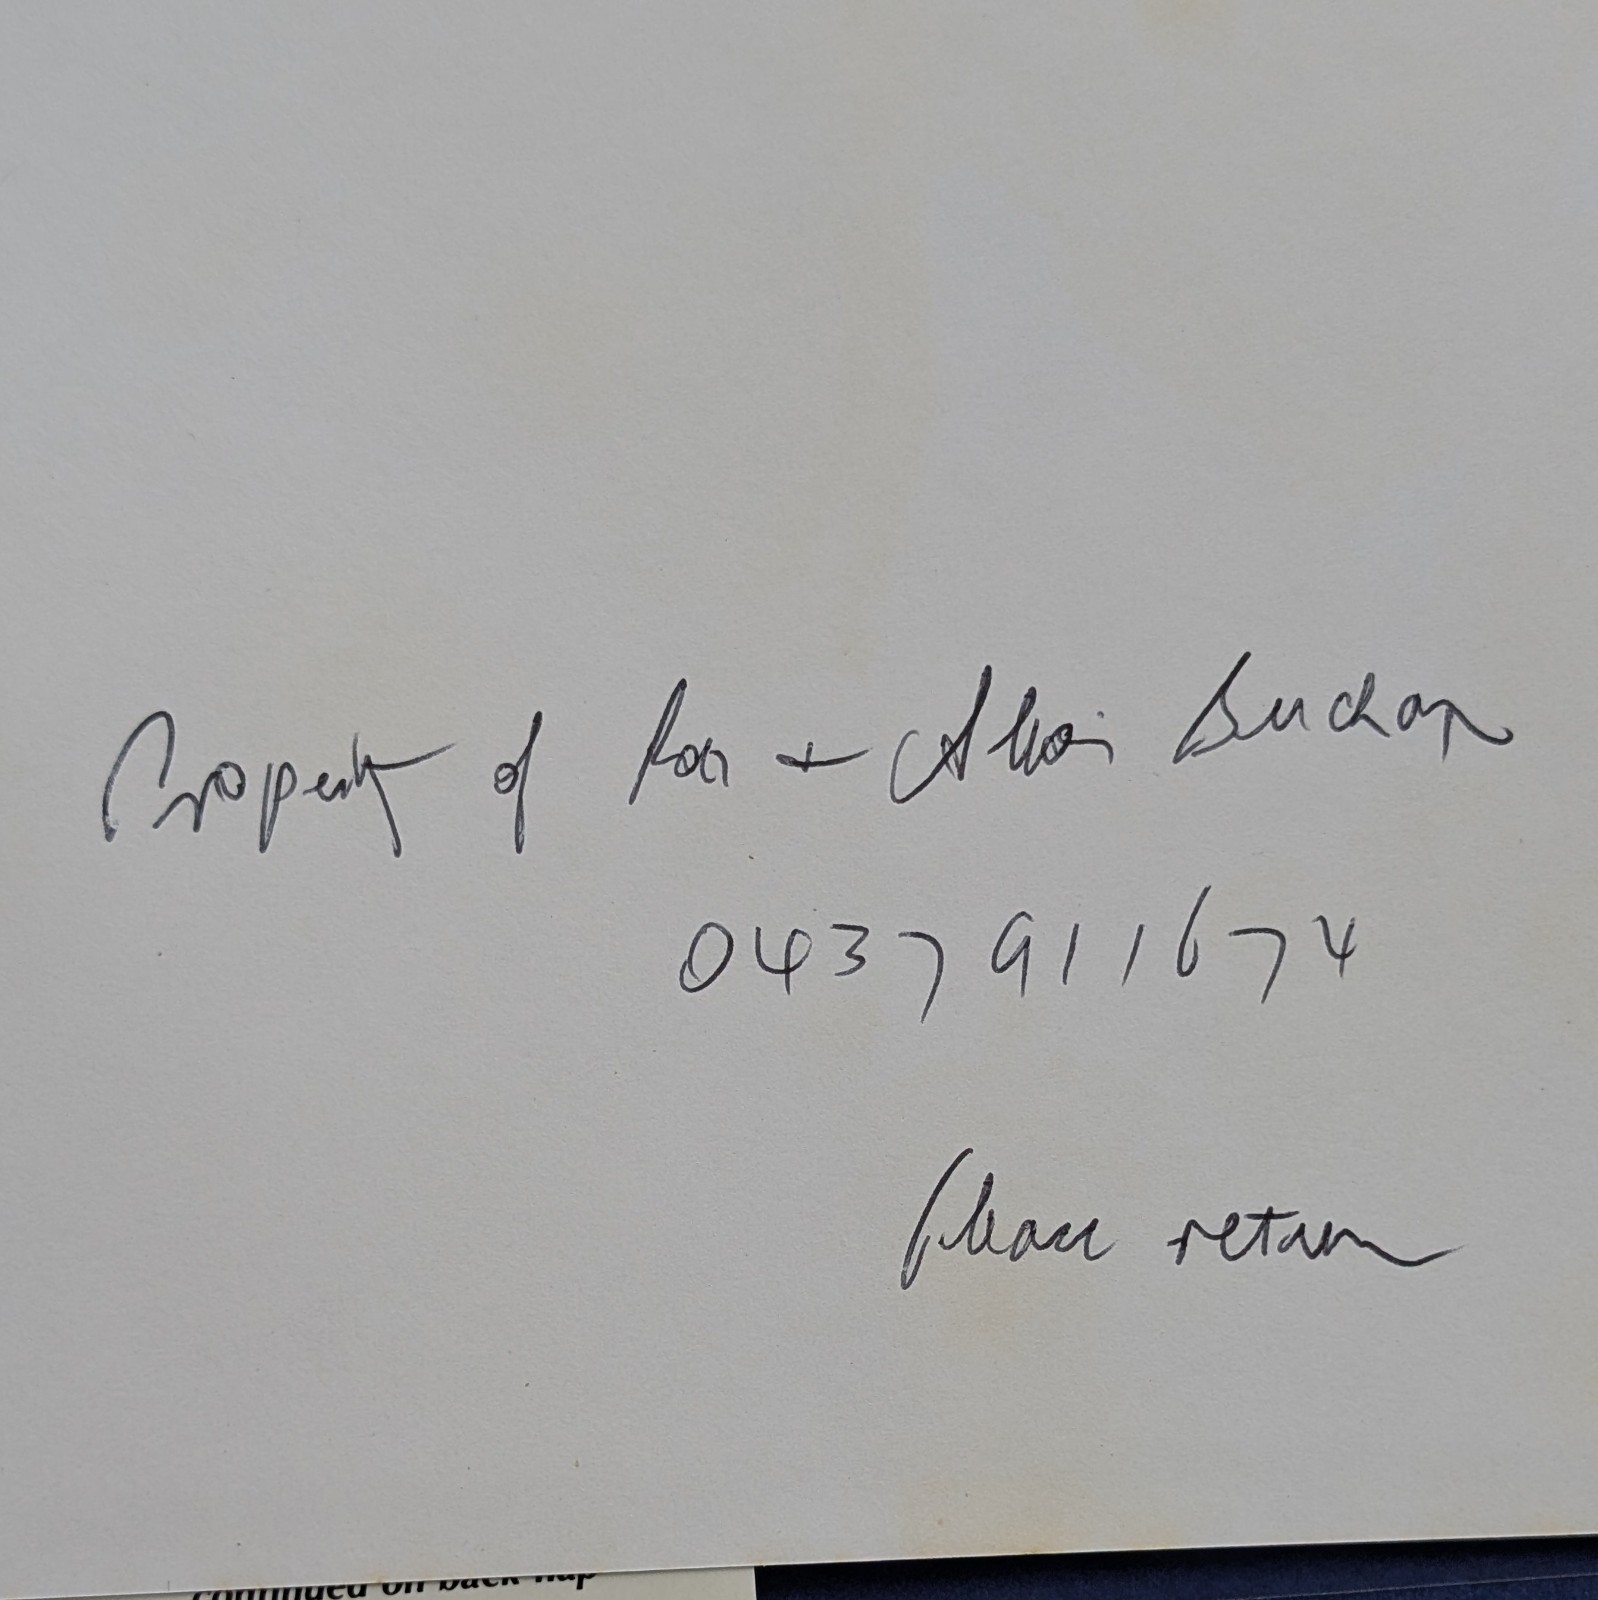 Property of Ron + Alison Buchan
0437 911674
Please return
continued on back flap